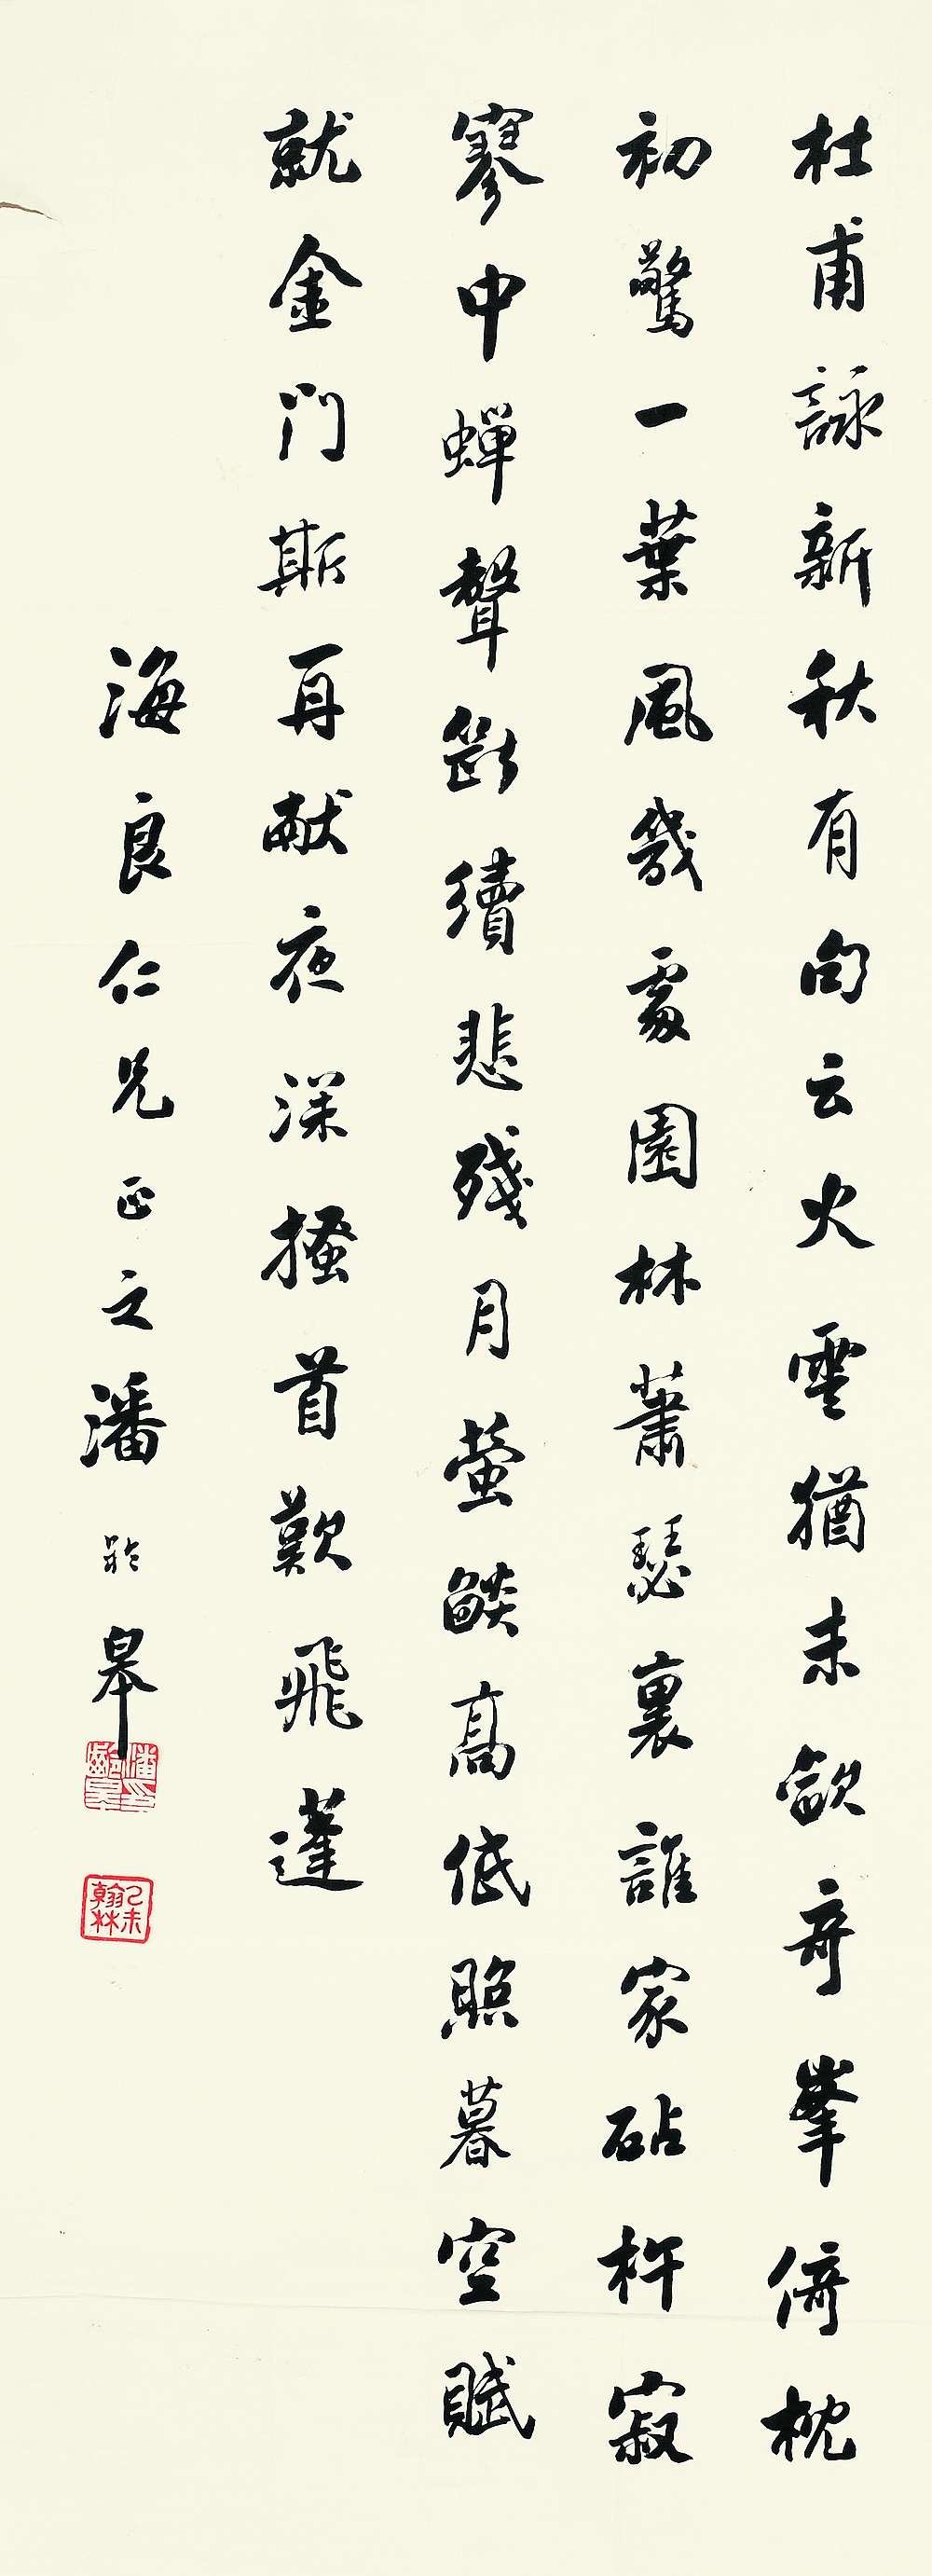 杜甫詠新秋有句云火雲猶未歛奇峯倚枕
初驚一葉風幾處園林蕭瑟裏誰家砧杵寂
寥中蟬聲斷續悲殘月螢燄高低照暮空賦
就金門斯再献夜深搔首歎飛蓬
海良仁兄正之潘齡皋
潘齡皋
乙未翰林